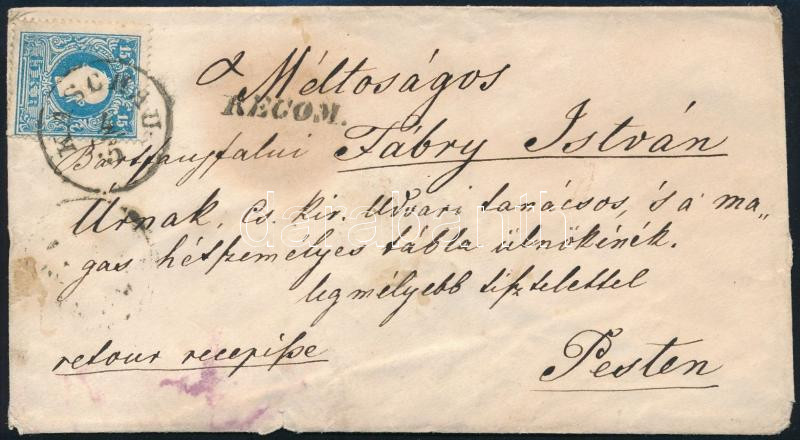 15 15
KASCHAU
15
RECOM.
a Méltoságos
Bártfaujfalui Fábry István
Urnak, cs. kir. Udvari tanácsos, 's a ma„
gas hétszemélyes tábla ülnökének.
legmélyebb tisztelettel
retour recepisse Pesten
darabanth